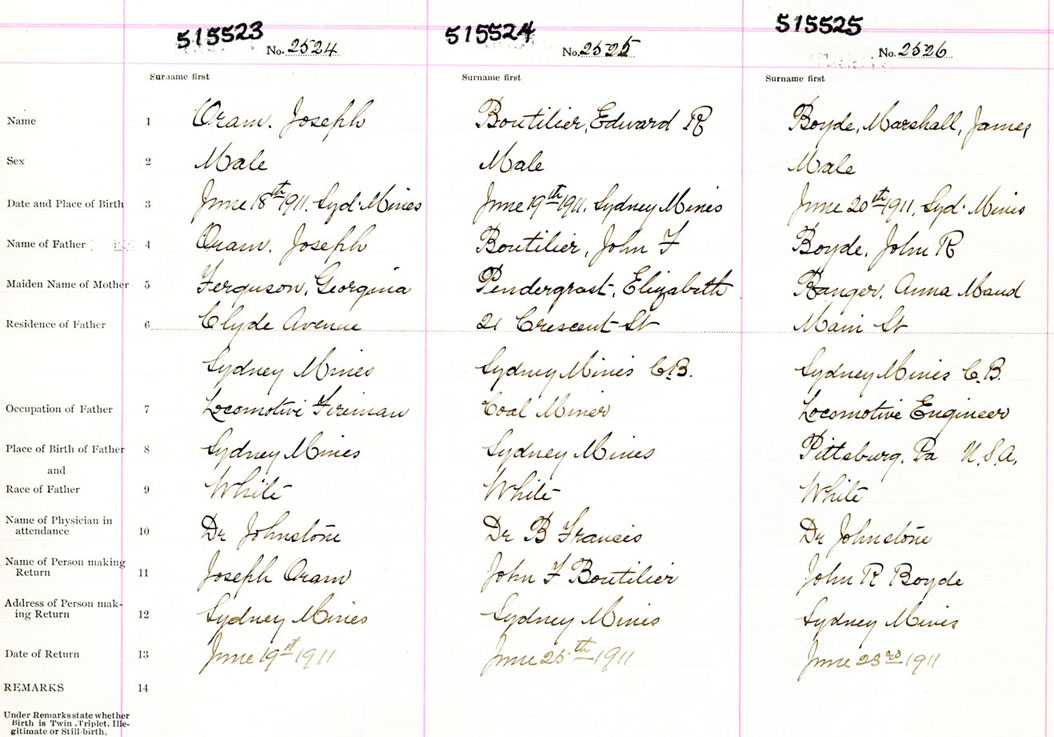 515523 515524 515525
No. 2524 No. 2525 No. 2526
Surname first Surname first Surname first
Name 1 Oram. Joseph Boutilier, Edward R Boyde, Marshall, James
Sex 2 Male Male Male
Date and Place of Birth 3 June 18th 1911. Syd. Mines June 19th 1911, Sydney Mines June 20th 1911, Syd. Mines
Name of Father 4 Oram. Joseph Boutilier, John F Boyde, John R
Maiden Name of Mother 5 Ferguson, Georgina Pendergrast, Elizabeth Hanger, Anna Maud
Residence of Father 6 Clyde Avenue 21 Crescent St Main St
Sydney Mines Sydney Mines C.B. Sydney Mines C.B.
Occupation of Father 7 Locomotive Fireman Coal Miner Locomotive Engineer
Place of Birth of Father 8 Sydney Mines Sydney Mines Pittsburg, Pa U.S.A.
and
Race of Father 9 White White White
Name of Physician in
attendance 10 Dr Johnstone Dr B Francis Dr Johnstone
Name of Person making
Return 11 Joseph Oram John F Boutilier John R Boyde
Address of Person mak-
ing Return 12 Sydney Mines Sydney Mines Sydney Mines
Date of Return 13 June 19st 1911 June 25th 1911 June 23rd 1911
REMARKS 14
Under Remarks state whether
Birth is Twin, Triplet, Ille-
gitimate or Still-birth.